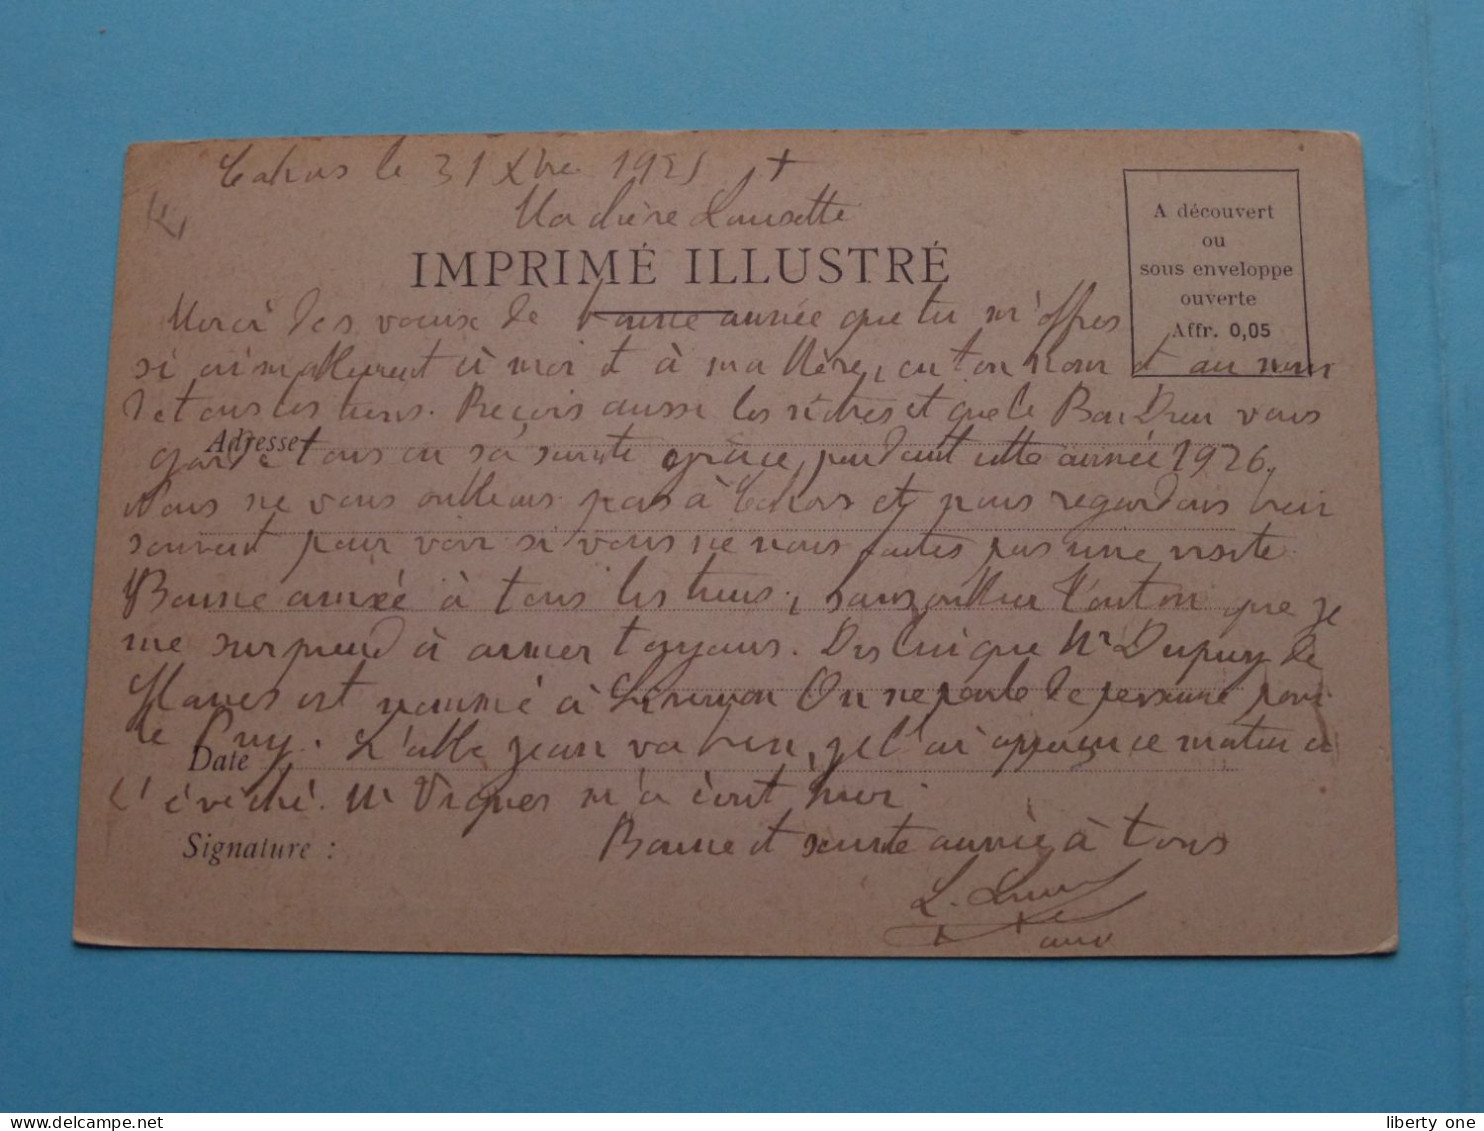 Cahors le 31 Xbre 1925 +
Ma chère Lousette
IMPRIMÉ ILLUSTRÉ
A découvert
ou
sous enveloppe
ouverte
Affr. 0,05
Merci des voeux de bonne année que tu m'offres
si aimablement à moi et à ma Mère, en ton nom et au nom
de tous les tiens. Reçois aussi les nôtres et que le Bon Dieu vous
Adresse
garde tous en sa sainte grâce, pendant cette année 1926.
Nous ne vous oublions pas à Cahors et nous regardons bien
souvent pour voir si vous ne nous faites pas une visite.
Bonne année à tous les tiens, sans oublier Tonton que je
me surprend à aimer toujours. Dis lui que Mr Dupuy de
est nommé à On ne parle de personne pour
le Puy. L'abbé Jean va bien, je l'ai aperçu ce matin à
Date
l'évêché. Mr Vignes m'a écrit hier.
Signature :
Bonne et sainte année à tous
L.
liberty one